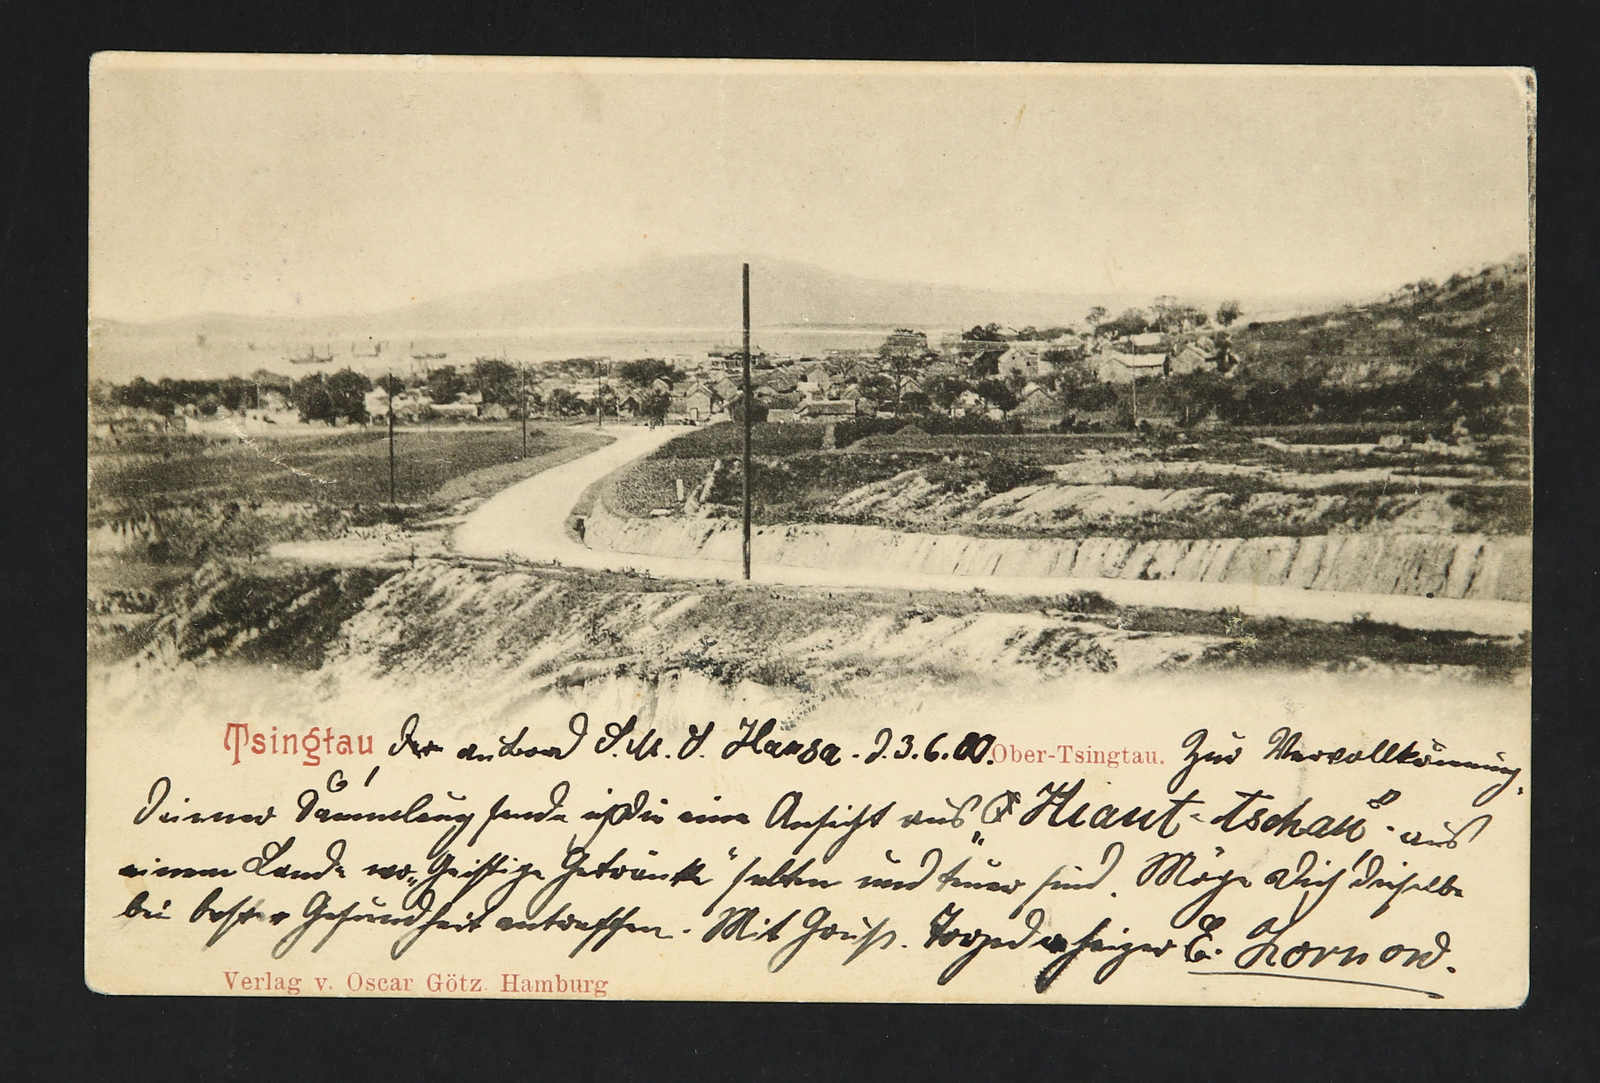 Tsingtau den anbord S.M.S. Hansa. d. 3. 6. 00. Ober-Tsingtau. Zur Vervollkomnung
Deiner Sammlung sende ich Dir eine Ansicht aus „Kiaut-tschau“. aus
einem Lande wo „Geistige Getränke“ selten und teuer sind. Möge Dich dieselbe
bei bester Gesundheit antreffen. Mit Gruss. Torpedoheizer E. Zornow.
Verlag v. Oscar Götz. Hamburg